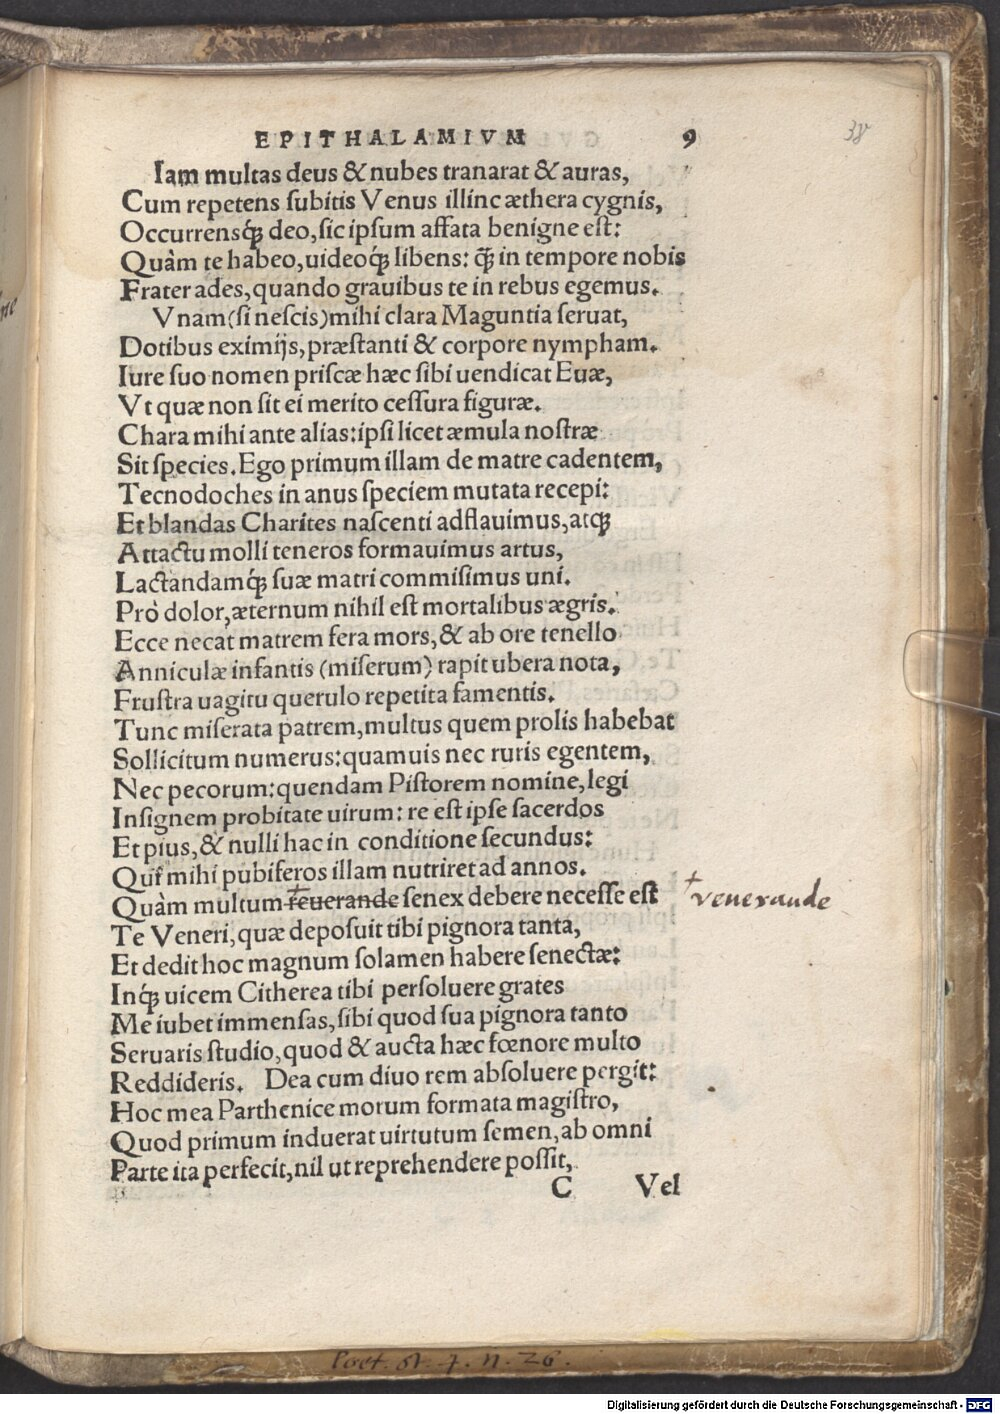 EPITHALAMIVM 9
38
Iam multas deus & nubes tranarat & auras,
Cum repetens ſubitis Venus illinc æthera cygnis,
Occurrensq́ꝫ deo, ſic ipſum affata benigne eſt:
Quàm te habeo, uideoq́ꝫ libens: ꝙ̃ in tempore nobis
Frater ades, quando grauibus te in rebus egemus.
Vnam (ſi neſcis) mihi clara Maguntia ſeruat,
Dotibus eximijs, præſtanti & corpore nympham.
Iure ſuo nomen priſcæ hæc ſibi uendicat Euæ,
Vt quæ non ſit ei merito ceſſura figuræ.
Chara mihi ante alias: ipſi licet æmula noſtræ
Sit ſpecies. Ego primum illam de matre cadentem,
Tecnodoches in anus ſpeciem mutata recepi:
Et blandas Charites naſcenti adflauimus, atqꝫ
Attactu molli teneros formauimus artus,
Lactandamq́ꝫ ſuæ matri commiſimus uni.
Prò dolor, æternum nihil eſt mortalibus ægris.
Ecce necat matrem fera mors, & ab ore tenello
Anniculæ infantis (miſerum) rapit ubera nota,
Fruſtra uagitu querulo repetita famentis.
Tunc miſerata patrem, multus quem prolis habebat
Sollicitum numerus: quamuis nec ruris egentem,
Nec pecorum: quendam Piſtorem nomine, legi
Inſignem probitate uirum: re eſt ipſe ſacerdos
Et pius, & nulli hac in conditione ſecundus:
Qui mihi pubiferos illam nutriret ad annos.
Quàm multum reuerande ſenex debere neceſſe eſt
+ venerande
Te Veneri, quæ depoſuit tibi pignora tanta,
Et dedit hoc magnum ſolamen habere ſenectæ:
Inq́ꝫ uicem Citherea tibi perſoluere grates
Me iubet immenſas, ſibi quod ſua pignora tanto
Seruaris ſtudio, quod & aucta hæc fœnore multo
Reddideris. Dea cum diuo rem abſoluere pergit:
Hoc mea Parthenice morum formata magiſtro,
Quod primum induerat uirtutum ſemen, ab omni
Parte ita perfecit, nil ut reprehendere poſſit,
C Vel
Poet. st. 7. n. 26.
Digitalisierung gefördert durch die Deutsche Forschungsgemeinschaft - DFG